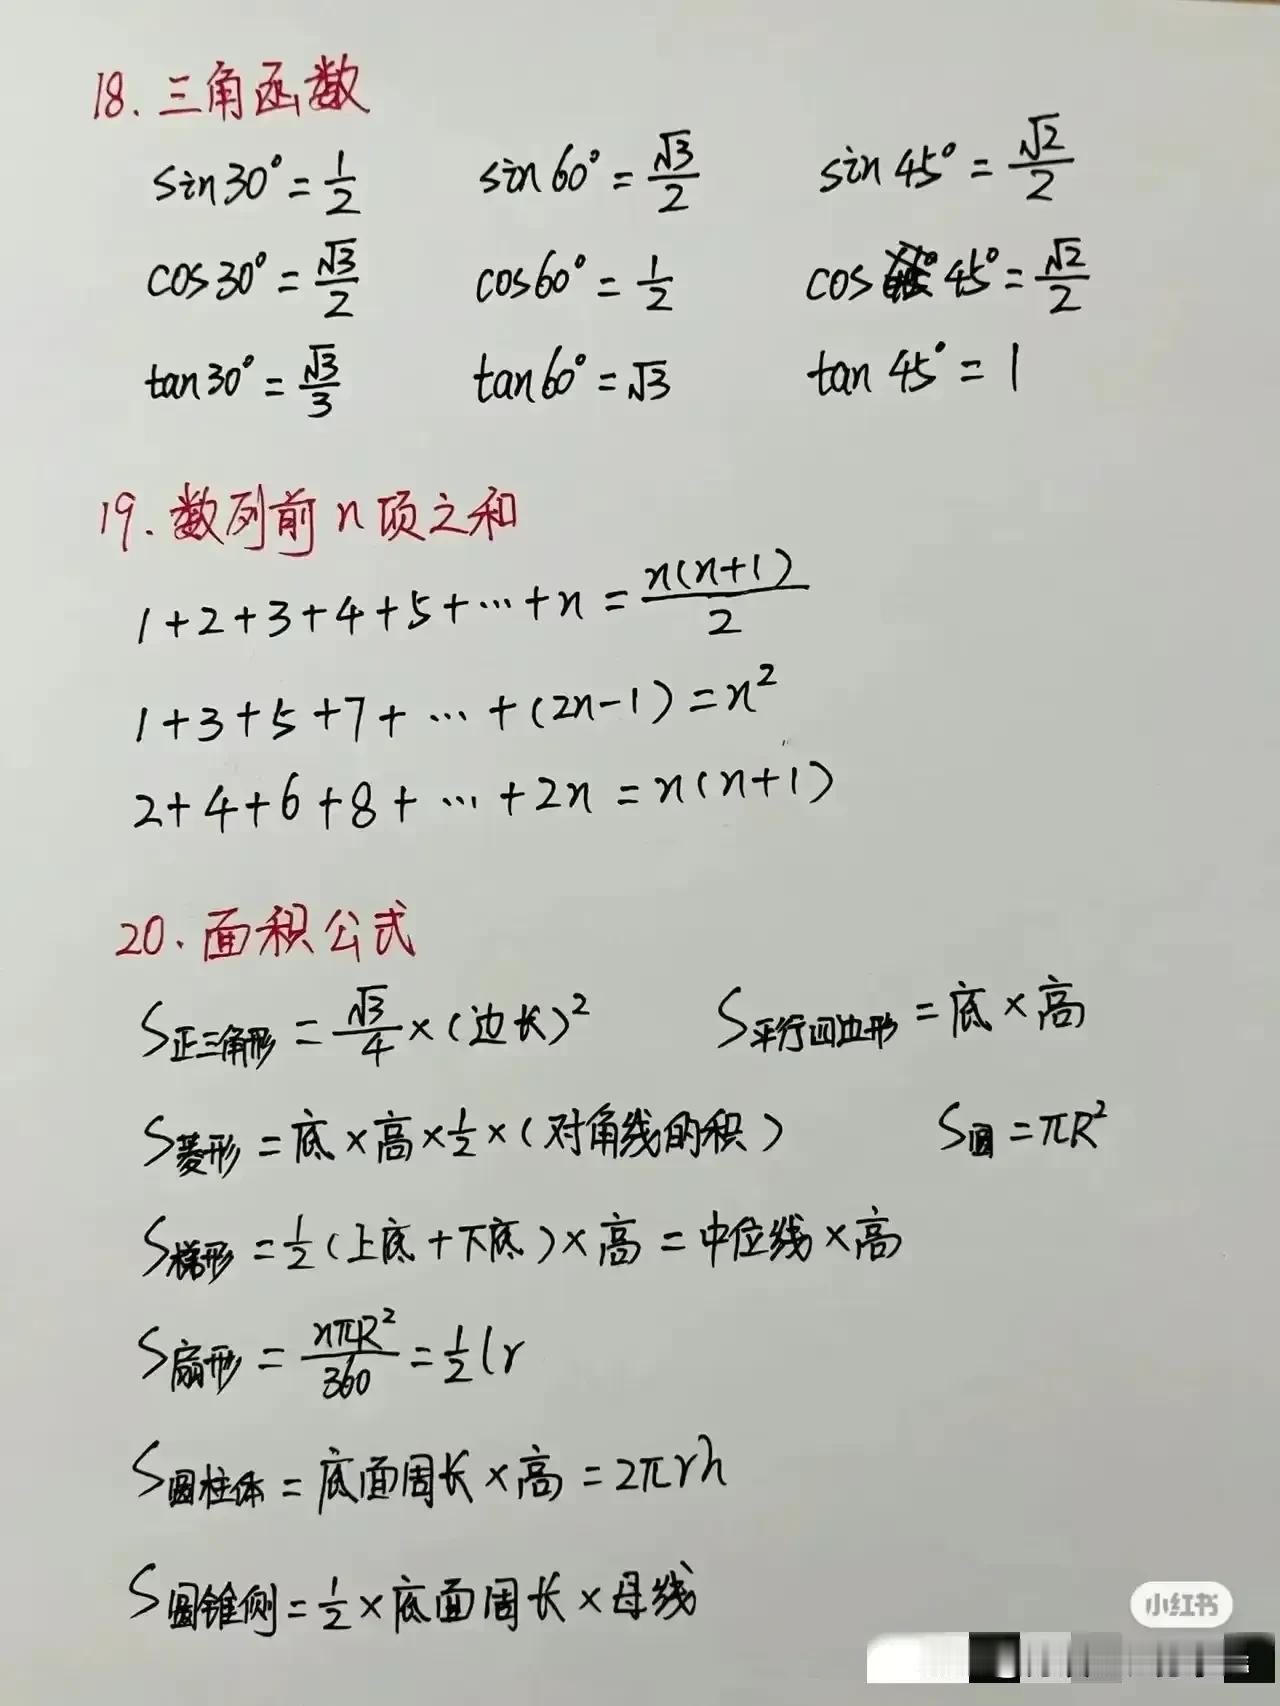 18. 三角函数
sin30° = 1/2  sin60° = √3/2  sin45° = √2/2
cos30° = √3/2  cos60° = 1/2  cos 45° = √2/2
tan30° = √3/3  tan60° = √3  tan45° = 1
19. 数列前n项之和
1+2+3+4+5+…+n = n(n+1)/2
1+3+5+7+…+(2n-1) = n²
2+4+6+8+…+2n = n(n+1)
20. 面积公式
S正三角形 = √3/4 ×(边长)²  S平行四边形 = 底×高
S菱形 = 底×高×1/2×(对角线的积)  S圆 = πR²
S梯形 = 1/2(上底+下底)×高 = 中位线×高
S扇形 = nπR²/360 = 1/2 lr
S圆柱体 = 底面周长×高 = 2πrh
S圆锥侧 = 1/2×底面周长×母线
小红书